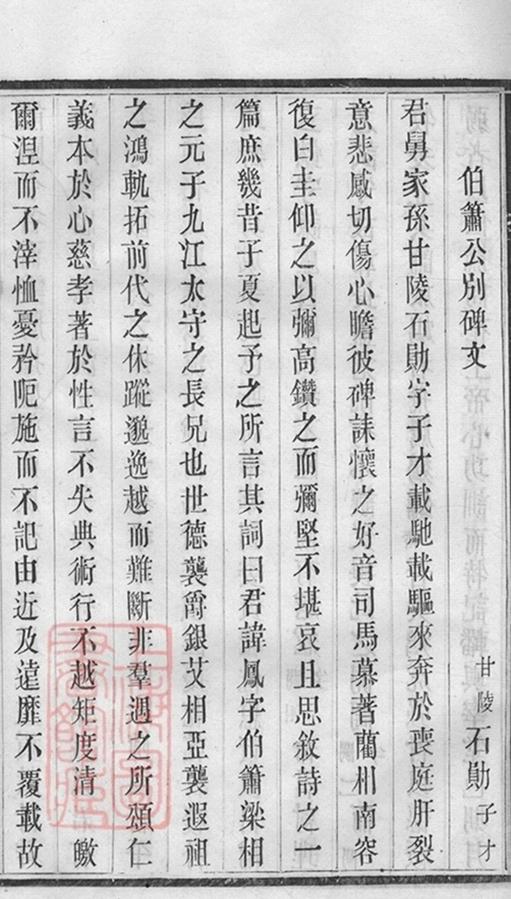 伯簫公別碑文
甘陵石勛子才
君舅家孫甘陵石勛字子才載馳載驅來奔於喪庭肝裂
意悲感切傷心瞻彼碑誄懷之好音司馬慕著藺相南容
復白圭仰之以彌高鑽之而彌堅不堪哀且思敘詩之一
篇庶幾昔子夏起予之所言其詞曰君諱鳳字伯簫梁相
之元子九江太守之長兄也世德襲爵銀艾相亞襲遐祖
之鴻軌拓前代之休蹤邈逸越而難斷非羣遇之所頌仁
義本於心慈孝著於性言不失典術行不越矩度清 皦
爾涅而不滓恤憂矜阨施而不記由近及遠靡不覆載故